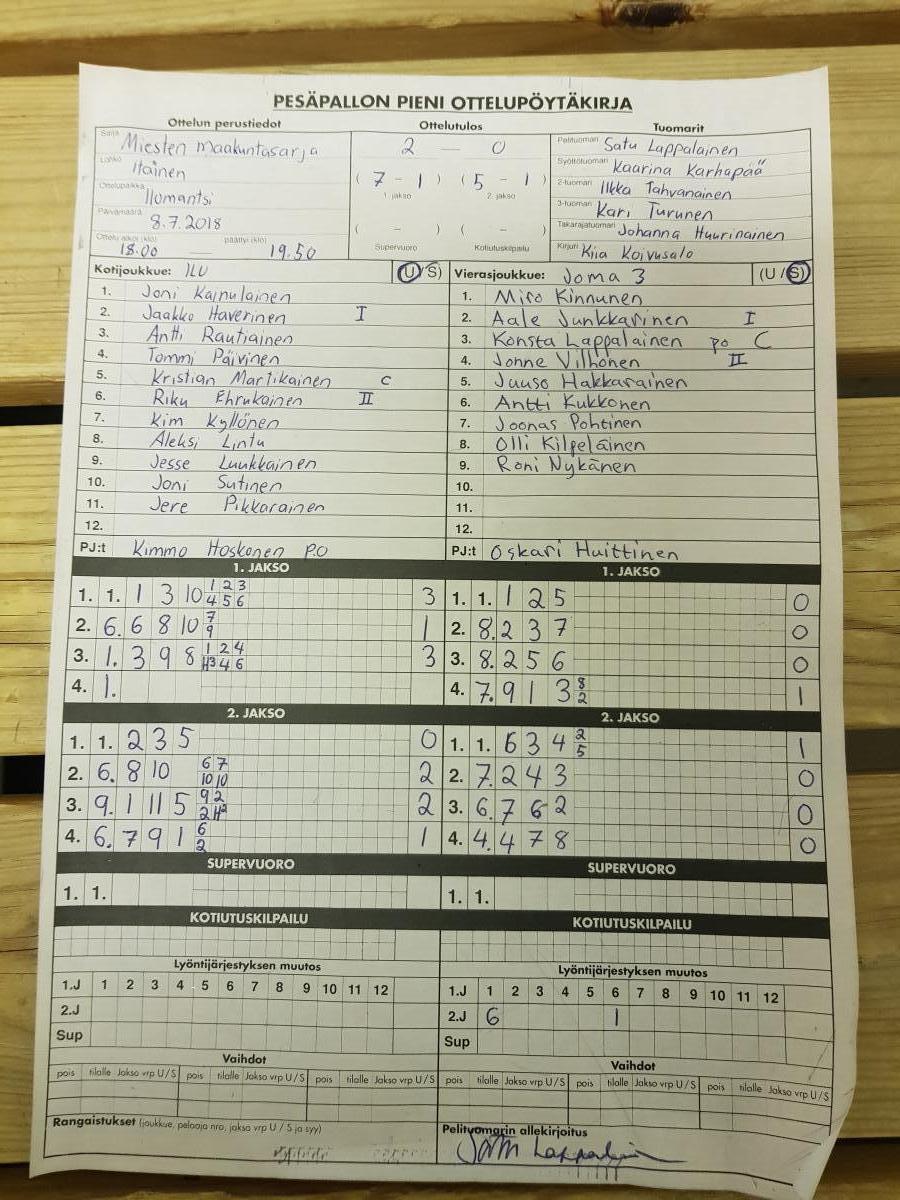 PESÄPALLON PIENI OTTELUPÖYTÄKIRJA
Ottelun perustiedot
Sarja Miesten maakuntasarja
Lohko Itäinen
Ottelupaikka Ilomantsi
Päivämäärä 8.7.2018
Ottelu alkoi (klo) 18.00 päättyi (klo) 19.50
Ottelutulos
2 — 0
( 7 - 1 ) ( 5 - 1 )
1. jakso 2. jakso
( - ) ( - )
Supervuoro Kotiutuskilpailu
Tuomarit
Pelituomari Satu Lappalainen
Syöttötuomari Kaarina Karhapää
2-tuomari Ilkka Tahvanainen
3-tuomari Kari Turunen
Takarajatuomari Johanna Huurinainen
Kirjuri Kiia Koivusalo
Kotijoukkue: ILU (U/S)
1. Joni Kainulainen
2. Jaakko Haverinen I
3. Antti Rautiainen
4. Tommi Päivinen
5. Kristian Martikainen C
6. Riku Ehrukainen II
7. Kim Kyllönen
8. Aleksi Lintu
9. Jesse Luukkainen
10. Joni Sutinen
11. Jere Pikkarainen
12.
PJ:t Kimmo Hoskonen P.O
Vierasjoukkue: Joma 3 (U/S)
1. Miro Kinnunen
2. Aale Junkkarinen I
3. Konsta Lappalainen po C
4. Jonne Vilhonen II
5. Juuso Hakkarainen
6. Antti Kukkonen
7. Joonas Pohtinen
8. Olli Kilpeläinen
9. Roni Nykänen
10.
11.
12.
PJ:t Oskari Huittinen
1. JAKSO
1. 1. 1 3 10 1 2 3 4 5 6 3
2. 6. 6 8 10 7 9 1
3. 1. 3 9 8 1 2 4 H3 4 6 3
4. 1.
1. JAKSO
1. 1. 1 2 5 0
2. 8. 2 3 7 0
3. 8. 2 5 6 0
4. 7. 9 1 3 8 2 1
2. JAKSO
1. 1. 2 3 5 0
2. 6. 8 10 6 7 10 10 2
3. 9. 1 11 5 9 2 2 H2 2
4. 6. 7 9 1 6 2 1
2. JAKSO
1. 1. 6 3 4 2 5 1
2. 7. 2 4 3 0
3. 6. 7 6 2 0
4. 4. 4 7 8 0
SUPERVUORO
1. 1.
SUPERVUORO
1. 1.
KOTIUTUSKILPAILU
KOTIUTUSKILPAILU
Lyöntijärjestyksen muutos
1.J 1 2 3 4 5 6 7 8 9 10 11 12
2.J
Sup
Lyöntijärjestyksen muutos
1.J 1 2 3 4 5 6 7 8 9 10 11 12
2.J 6 1
Sup
Vaihdot
pois tilalle Jakso vrp U/S pois tilalle Jakso vrp U/S pois tilalle Jakso vrp U/S
Vaihdot
pois tilalle Jakso vrp U/S pois tilalle Jakso vrp U/S pois tilalle Jakso vrp U/S
Rangaistukset (joukkue, pelaaja nro, jakso vrp U / S ja syy)
Pelituomarin allekirjoitus